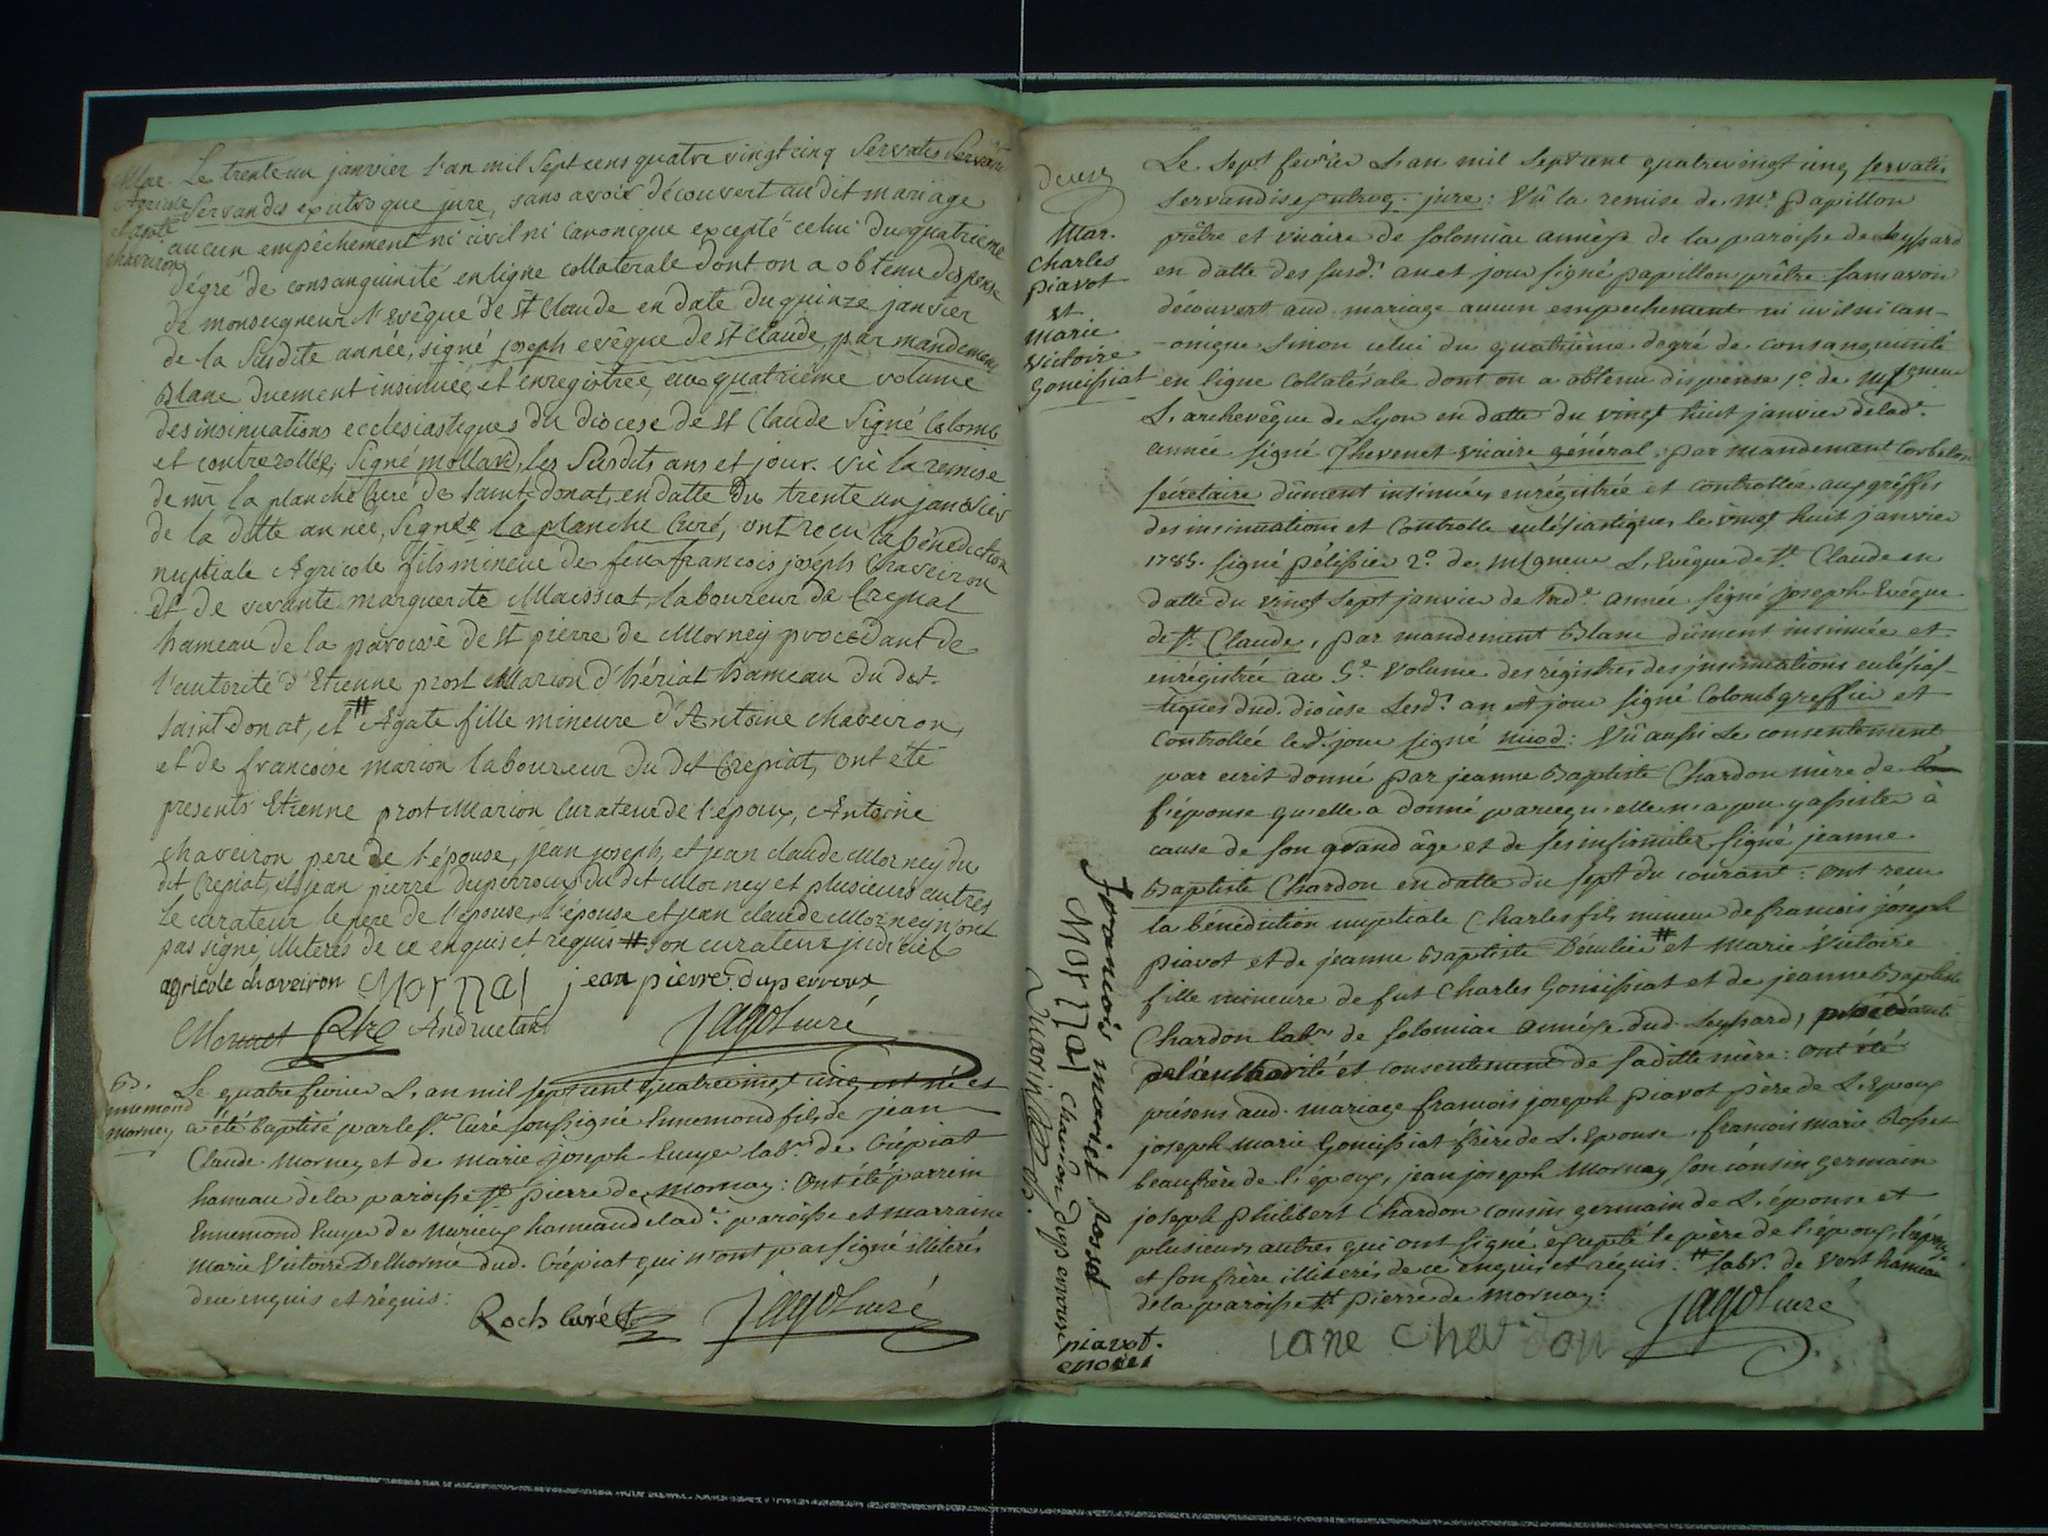 Mar.
Agricole
et agate
chaveiron
Le trente un janvier l'an mil Sept cens quatre vingt cinq Servatis Servan
Servandis ex utroque jure, sans avoir découvert au dit mariage
aucun empêchement ni civil ni Canonique excepté celui du quatrieme
dégré de consanguinité en ligne collaterale dont on a obtenu dispense
de monseigneur l'Evêque de St Claude en date du quinze janvier
de la Susdite année, signé joseph evêque de St Claude, par mandement
Blanc duement insinuée et enregistrée au quatrieme volume
des insinuations ecclesiastiques du diocese de St Claude Signé Colomb
et controllée, Signé mollard, les Susdits ans et jour. vû la remise
de mr la planche Curé de Saint donat, en datte du trente un janvier
de la ditte année, Signée la planche Curé, ont recu la bénédiction
nuptiale Agricole fils mineur de feu francois joseph Chaveiron
et de vivante marguerite Maissiat, laboureur de Crepiat
hameau de la paroisse de St pierre de Morney procedant de
l'autorité d'Etienne prost Marion d'hériat hameau du dit
saint donat, et # Agate fille mineure d'Antoine chaveiron,
et de francoise marion laboureur du dit Crepiat, ont été
presents Etienne prost Marion Curateur de l'époux, Antoine
chaveiron pere de l'épouse, jean joseph, et jean claude Morney du
dit Crepiat, et jean pierre duperroux du dit Morney et plusieurs autres
Le curateur le pere de l'épouse, l'épouse et jean claude Morney n'ont
pas signé, illiterés de ce enquis et requis # son curateur judiciel
agricole chaveiron Mornai jean pierre duperroux
Mornet Ptre Andruetan jagot curé
B.
ennemond
morney
Le quatre fevrier L'an mil sept cent quatre vingt cinq est né et
a été baptisé par le Sr. Curé soussigné Ennemond fils de jean
Claude Morney et de marie joseph Emye labr. de Crépiat
hameau de la paroisse St pierre de Mornay: Ont été parrein
Ennemond Emye de Nurieux hameau de lad. paroisse et marraine
Marie Victoire Delhorme dud. Crépiat qui n'ont pas signé illiterés
de ce enquis et requis:
Roch curé jagot curé
Mar.
Charles
piavot
et
Marie
Victoire
Goneissiat
Le Sept février L'an mil Sept cent quatre vingt cinq servatis
servandis ex utroq. jure: Vû la remise de Mr. Papillon
prêtre et vicaire de Solomiac annéxe de la paroisse de Leyssard
en datte des susd. an et jour signé papillon prêtre: sans avoir
découvert aud. mariage aucun empechement ni civil ni can-
-onique Sinon celui du quatrième degré de consanguinité
en ligne collatérale dont on a obtenu dispense 1o. de Msgneur
L'archevêque de Lyon en datte du vingt huit janvier de lad.
année signé Thevenet vicaire général, par mandement Corbelon
sécretaire dûment insinuée, enrégistrée et controllée aux gréffes
des insinuations et Controlle ecclésiastiques le vingt huit janvier
1785. signé pélissier 2o. de Msgneur L'Evêque de St. Claude en
datte du vingt sept janvier de lad. année signé joseph Evêque
de St. Claude, par mandement Blanc dûment insinuée et
enrégistrée au 5e. Volume des régistres des insinuations ecclésias-
-tiques dud. diocèse lesd. an et jour signé Colomb greffier et
Controllée led. jour signé niod: Vû aussi le consentement
par ecrit donné par jeanne Baptiste Chardon mère de
l'épouse qu'elle a donné parcequ'elle n'a pu y assister à
cause de son grand âge et de ses infirmités signé jeanne
Baptiste Chardon en datte du sept du courant: ont recu
la bénédiction nuptiale Charles fils mineur de francois joseph
piavot et de jeanne Baptiste # et Marie Victoire
fille mineure de fut Charles Goneissiat et de jeanne Baptiste
Chardon labr. de Solomiac annéxe dud. Leyssard, procédante
de l'authorité et consentement de saditte mère: ont été
présens aud. mariage francois joseph piavot père de L'Epoux
joseph Marie Goneissiat frère de L'Epouse, francois marie Rosset
beaufrère de l'époux, jean joseph Mornay son cousin germain
joseph philibert Chardon cousin germain de L'épouse et
plusieurs autres qui ont signé excepté le père de l'époux, l'épouse
et son frère illiterés de ce enquis et réquis. # labr. de Vert hameau
de la paroisse St pierre de Mornay:
iane Chardon jagot curé
francois mariet rosset
Mornai
piavot.